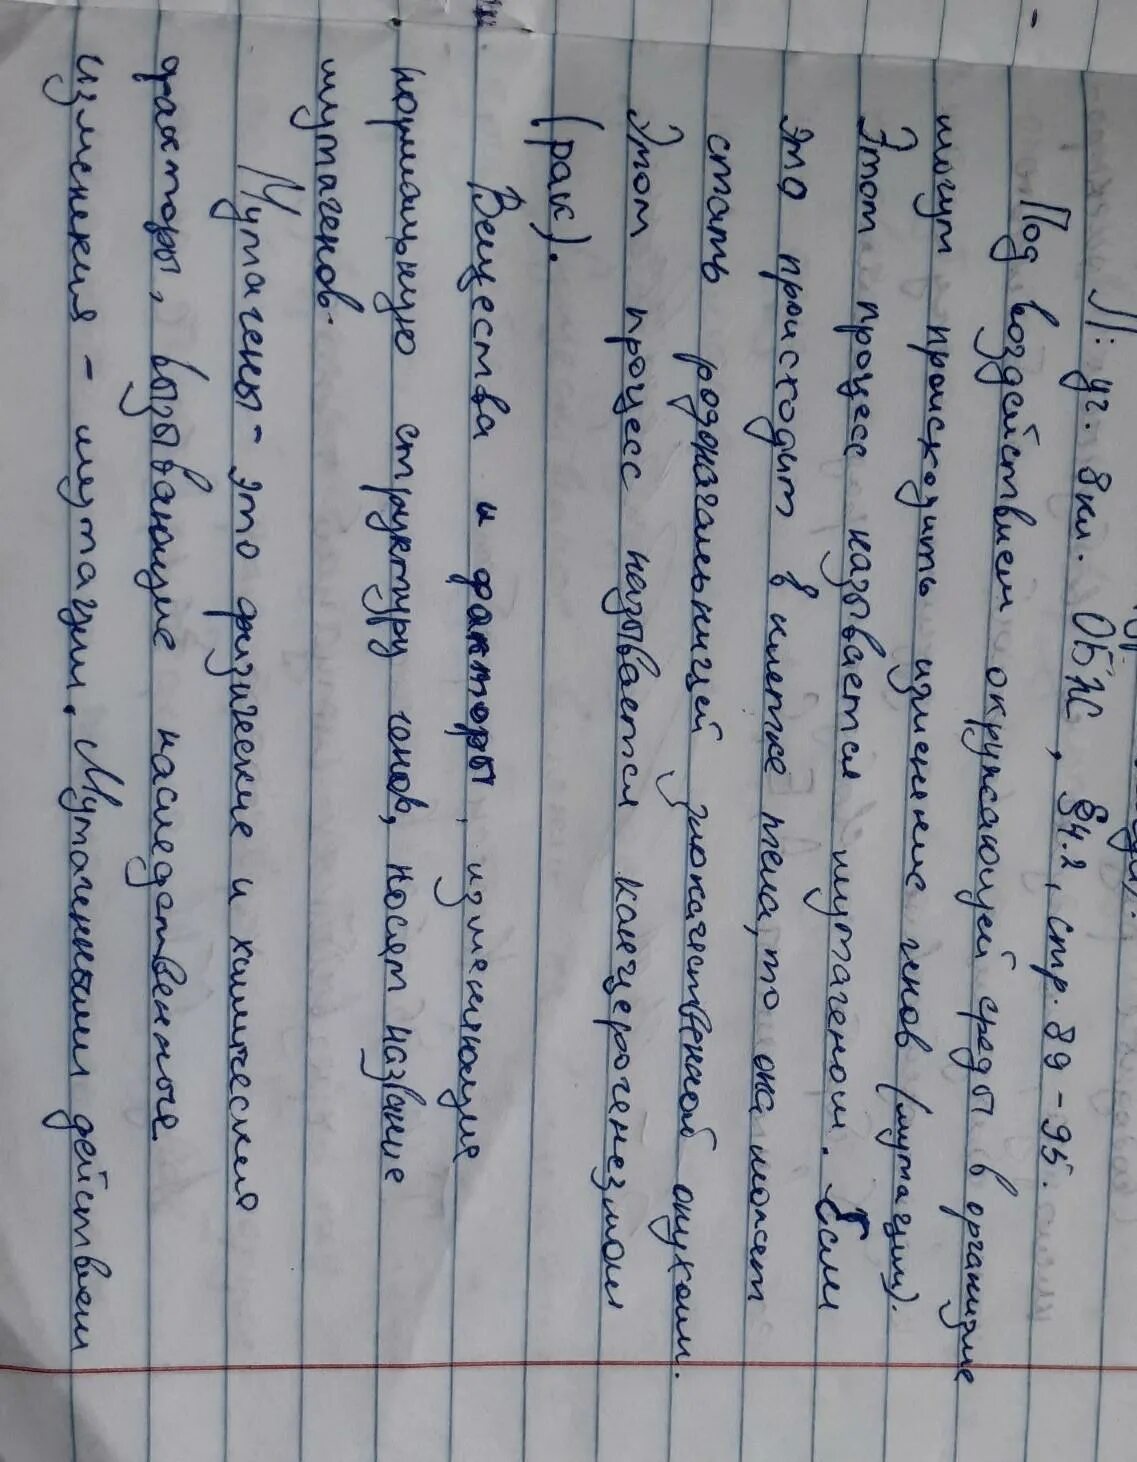 Л: уч. 8кл. ОБЖ, §4.2, стр. 89-95.
Под воздействием окружающей среды в организме
могут происходить изменение генов (мутации).
Этот процесс называется мутагеном. Если
это происходит в клетке тела, то она может
стать родоначальницей злокачественной опухоли.
Этот процесс называется канцерогенезмом
(рак).
Вещества и факторы, изменяющие
нормальную структуру генов, носят название
мутагенов.
Мутагены - это физические и химические
факторы, вызывающие наследственные
изменения - мутации. Мутагенными действием